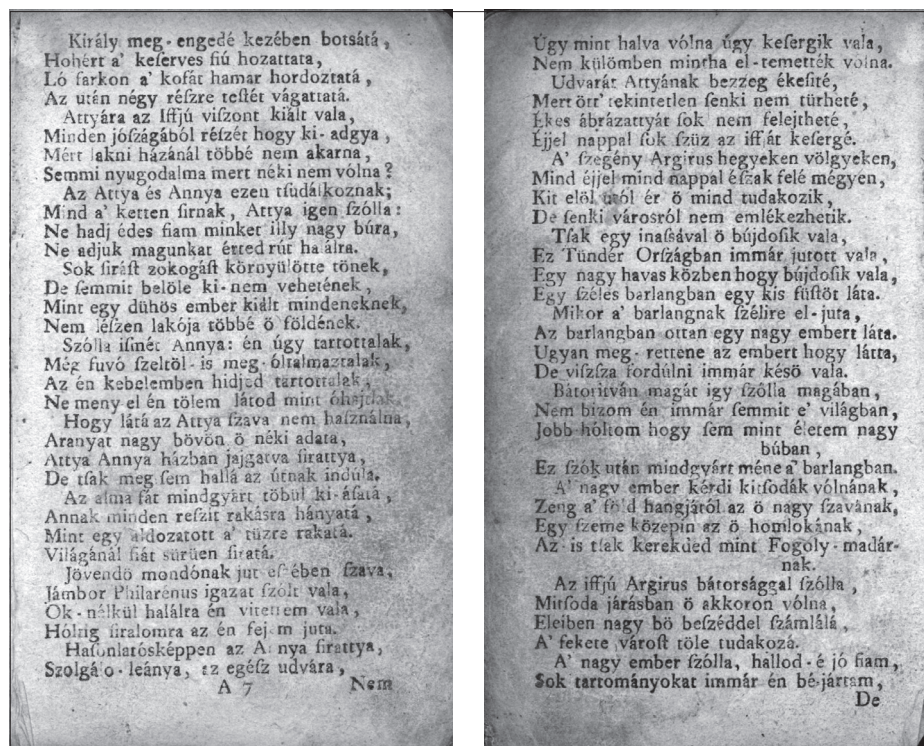 Király meg-engedé kezében botsátá,
Hohért a' keſerves fiú hozattata,
Ló farkon a' kofát hamar hordoztatá,
Az után négy réſzre teſtét vágattatá.
Attyára az Iffjú viſzont kiált vala,
Minden jóſzágából réſzét hogy ki-adgya,
Mért lakni házánál többé nem akarna,
Semmi nyugodalma mert néki nem vólna?
Az Attya és Annya ezen tſudálkoznak;
Mind a' ketten ſirnak, Attya igen ſzólla:
Ne hadj édes fiam minket illy nagy búra,
Ne adjuk magunkat érted rút halálra.
Sok ſiráſt zokogáſt környülötte tönek,
De ſemmit belöle ki-nem vehetének,
Mint egy dühös ember kiált mindeneknek,
Nem léſzen lakója többé ö földének.
Szólla iſmét Annya: én úgy tartottalak,
Még fuvó ſzeltöl-is meg-óltalmaztalak,
Az én kebelemben hidjed tartottalak,
Ne meny el én tölem látod mint óhajtlak.
Hogy látá az Attya ſzava nem haſználna,
Aranyat nagy bövön ö néki adata,
Attya Annya házban jajgatva ſirattya,
De tſak meg ſem hallá az útnak indúla.
Az alma fát mindgyárt töbül ki-áſatá,
Annak minden reſzit rakásra hányatá,
Mint egy áldozatott a' tüzre rakatá.
Világánál fiát sürüen ſiratá.
Jövendö mondónak jut eſzében ſzava,
Jámbor Philarenus igazat ſzólt vala,
Ok-nélkül halálra én vitettem vala,
Hólrig ſiralomra az én fejem juta.
Haſonlatósképpen az Annya ſirattya,
Szolgálo-leánya, az egéſz udvára,
A 7 Nem
Úgy mint halva vólna úgy keſergik vala,
Nem külömben mintha el-temették vólna.
Udvarát Attyának bezzeg ékeſité,
Mert ött' tekintetlen ſenki nem türheté,
Ékes ábrázattyát ſok nem felejtheté,
Éjjel nappal ſok ſzüz az iffját keſergé.
A' ſzegény Argirus hegyeken völgyeken,
Mind éjjel mind nappal éſzak felé mégyen,
Kit elöl utól ér ö mind tudakozik,
De ſenki városról nem emlékezhetik.
Tſak egy inaſsával ö bújdoſik vala,
Ez Tündér Orſzágban immár jutott vala,
Egy nagy havas közben hogy bújdoſik vala,
Egy ſzéles barlangban egy kis füſtöt láta.
Mikor a' barlangnak ſzélire el-juta,
Az barlangban ottan egy nagy embert láta.
Ugyan meg-rettene az embert hogy látta,
De viſzſza fordúlni immár késö vala.
Bátoritván magát igy ſzólla magában,
Nem bizom én immár ſemmit e' világban,
Jobb hóltom hogy ſem mint életem nagy
búban,
Ez ſzók után mindgyárt méne a' barlangban.
A' nagy ember kérdi kitſodák vólnának,
Zeng a' föld hangjától az ö nagy ſzavának,
Egy ſzeme közepin az ö homlokának,
Az is tſak kerekded mint Fogoly-madár-
nak.
Az iffjú Argirus bátorsággal ſzólla,
Mitſoda járásban ö akkoron vólna,
Eleiben nagy bö beſzéddel ſzámlálá,
A' fekete várost töle tudakozá.
A' nagy ember ſzólla, hallod-é jó fiam,
Sok tartományokat immár én bé-jártam,
De